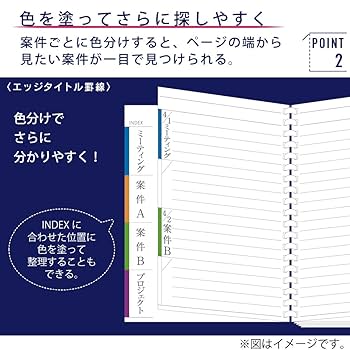 色を塗ってさらに探しやすく
案件ごとに色分けすると、ページの端から
見たい案件が一目で見つけられる。
POINT
2
〈エッジタイトル罫線〉
色分けで
さらに
分かりやすく！
INDEXに
合わせた位置に
色を塗って
整理することも
できる。
INDEX
ミーティング
案件A
案件B
プロジェクト
4/1ミーティング
4/2案件B
※図はイメージです。